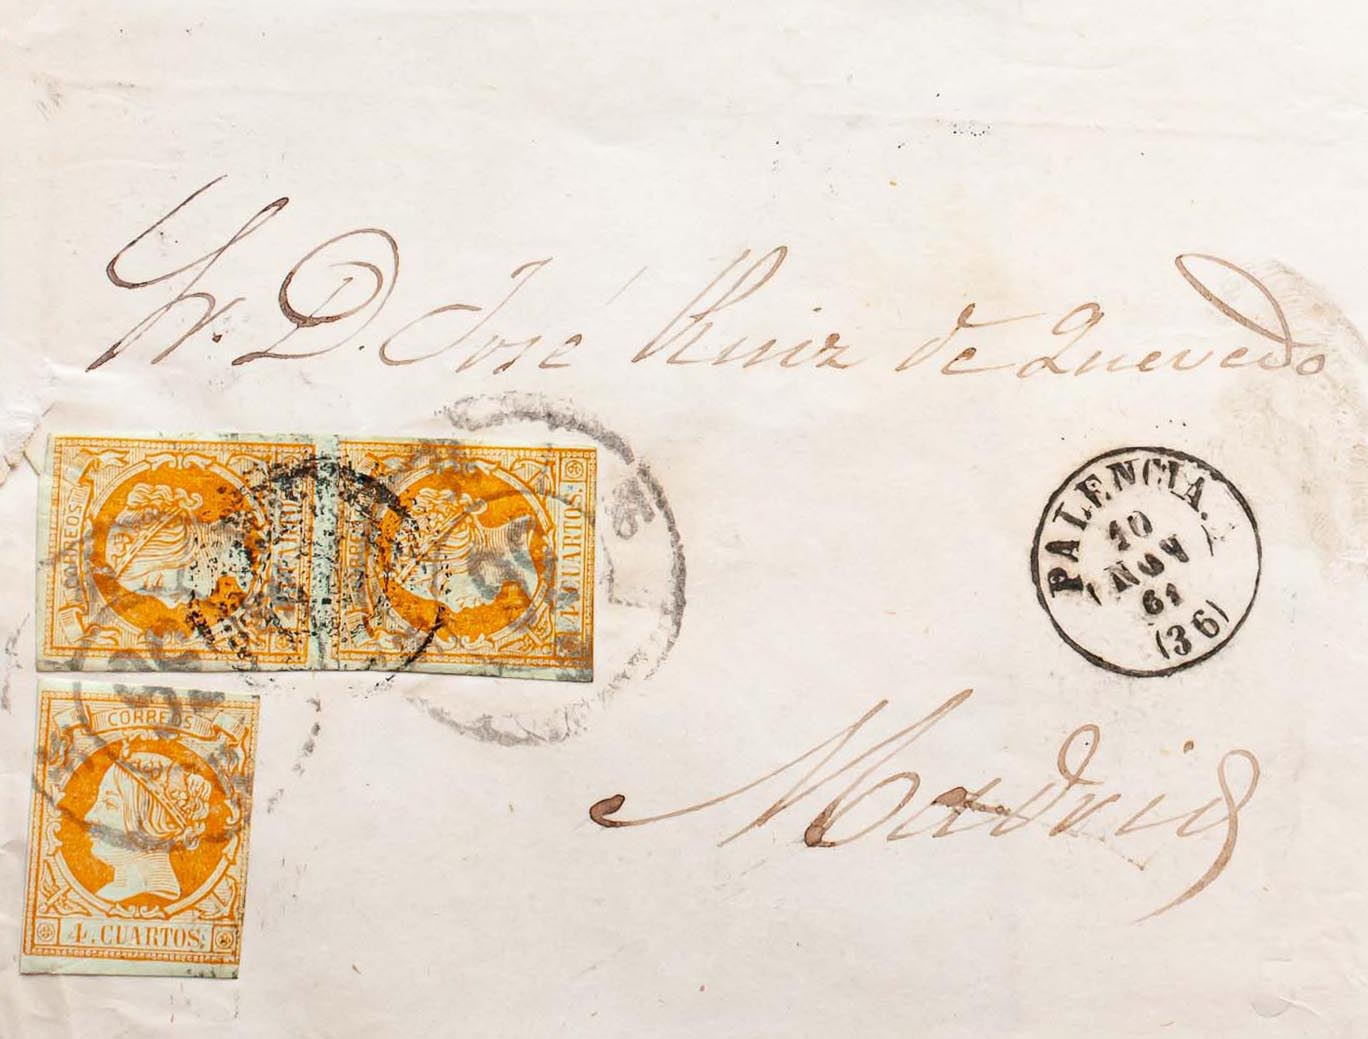 Sr. D. José Ruiz de Quevedo
CORREOS
4 CUARTOS.
PALENCIA.
10
NOV
61
(36)
CORREOS
4. CUARTOS.
Madrid